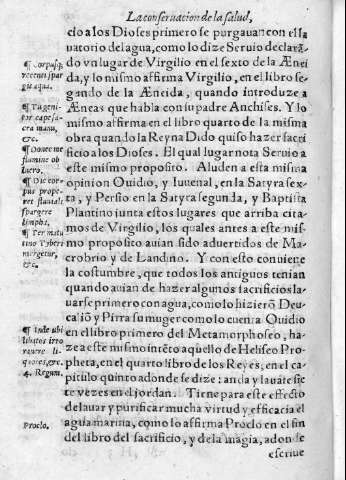 La conseruacion de la salud,
cio a los Dioses primero se purgauan con el la
uatorio del agua, como lo dize Seruio declarã
do vn lugar de Virgilio en el sexto de la Ænei
da, y lo mismo affirma Virgilio, en el libro se
gundo de la Æneida, quando introduze a
Æneas que habla con su padre Anchises. Y lo
mismo affirma en el libro quarto de la misma
obra quando la Reyna Dido quiso hazer sacri
ficio a los Dioses. El qual lugar nota Seruio a
este mismo proposito. Aluden a esta misma
opinion Ouidio, y Iuuenal, en la Satyra sex
ta, y Persio en la Satyra segunda, y Baptista
Plantino junta estos lugares que arriba cita
mos de Virgilio, los quales antes a este mis
mo proposito auian sido aduertidos de Ma
crobrio y de Landino. Y con esto conuiene
la costumbre, que todos los antiguos tenian
quando auian de hazer algunos sacrificios la
uarse primero con agua, como lo hizierõ Deu
caliõ y Pirra su muger como lo cuenta Ouidio
en el libro primero del Metamorphoseo, ha
ze a este mismo intẽto aquello de Heliseo Pro
pheta, en el quarto libro de los Reyes, en el ca
pitulo quinto adonde se dize: anda y lauate sie
te vezes en el jordan. Tiene para este effecto
de lauar y purificar mucha virtud y efficacia el
agua marina, como lo affirma Proclo en el fin
del libro del sacrificio, y de la magia, adonde
escriue
¶ Corpusq́;
recenti spar
git aqua.
¶ Tu geni-
tor cape sa-
cra manu,
&c.
¶ Donec me
flumine
¶ Dic cor-
pus prope-
ret fluuiali
spargere
lympha.
¶ Ter matu
tino Tyberi
mergetur,
&c.
¶ Inde vbi
libatos irro
rauere li-
quores, &c.
4. Regum.
Proclo.